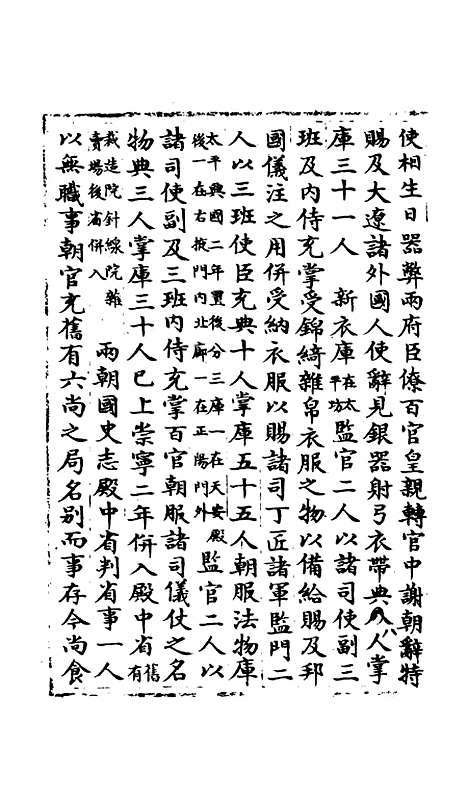 使相生日器弊兩府臣僚百官皇親轉官中謝朝辭特
賜及大遼諸外國人使辭見銀器射弓衣帶典八人掌
庫三十一人　新衣庫在太平坊監官二人以諸司使副三
班及内侍充掌受錦綺雜帛衣服之物以備給賜及邦
國儀注之用併受納衣服以賜諸司丁匠諸軍監門二
人以三班使臣充典十人掌庫五十五人朝服法物庫
太平興國二年置後分三庫一在天安殿
後一在右掖門内北廊一在正陽門外監官二人以
諸司使副及三班内侍充掌百官朝服諸司儀仗之名
物典三人掌庫三十人已上崇寧二年併入殿中省舊有
裁造院針線院雜
賣場後省併入　兩朝國史志殿中省判省事一人
以無職事朝官充舊有六尚之局名別而事存今尚食